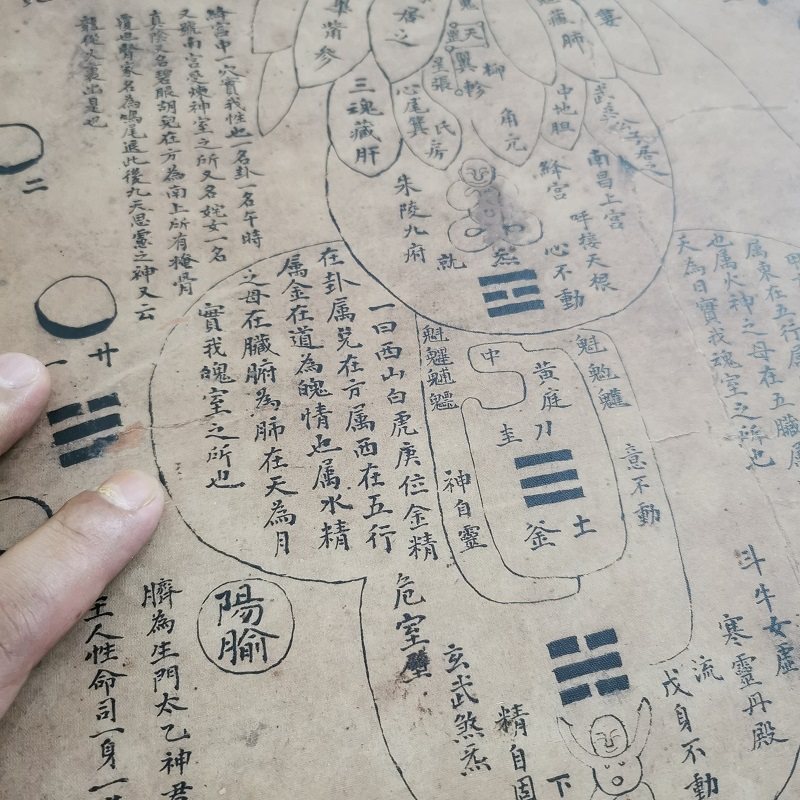 屬東在五行屬
也屬火神之母在五臟屬
天為日實我魂室之所也
婁
膽肺
居之
畢觜參
天
翼
軫
柳
星張
中地胆
角亢
氐房
心尾箕
三魂藏肝
南昌上宮
呼接天根
心不動
絳宮
朱陵九府
就
炁
絳宮中一穴實我性也一名卦一名午時
又號南宮受煉神室之所又名姹女一名
真陰又名碧眼胡兒在方為南上所有掩骨
覆也醫家名為鳩尾退此後九天思靈之神又云
龍從火裏出是也
二
廿一
一曰西山白虎庚位金精
在卦屬兌在方屬西在五行
屬金在道為魄情也屬水精
之母在臟腑為肺在天為月
實我魄室之所也
中
黃庭
圭
刀
土
釜
意不動
神自靈
斗牛女虛
寒靈丹殿
流
戊身不動
危室壁
玄武煞炁
精自固
下
陽腧
臍為生門太乙神君
主人性命司一身一